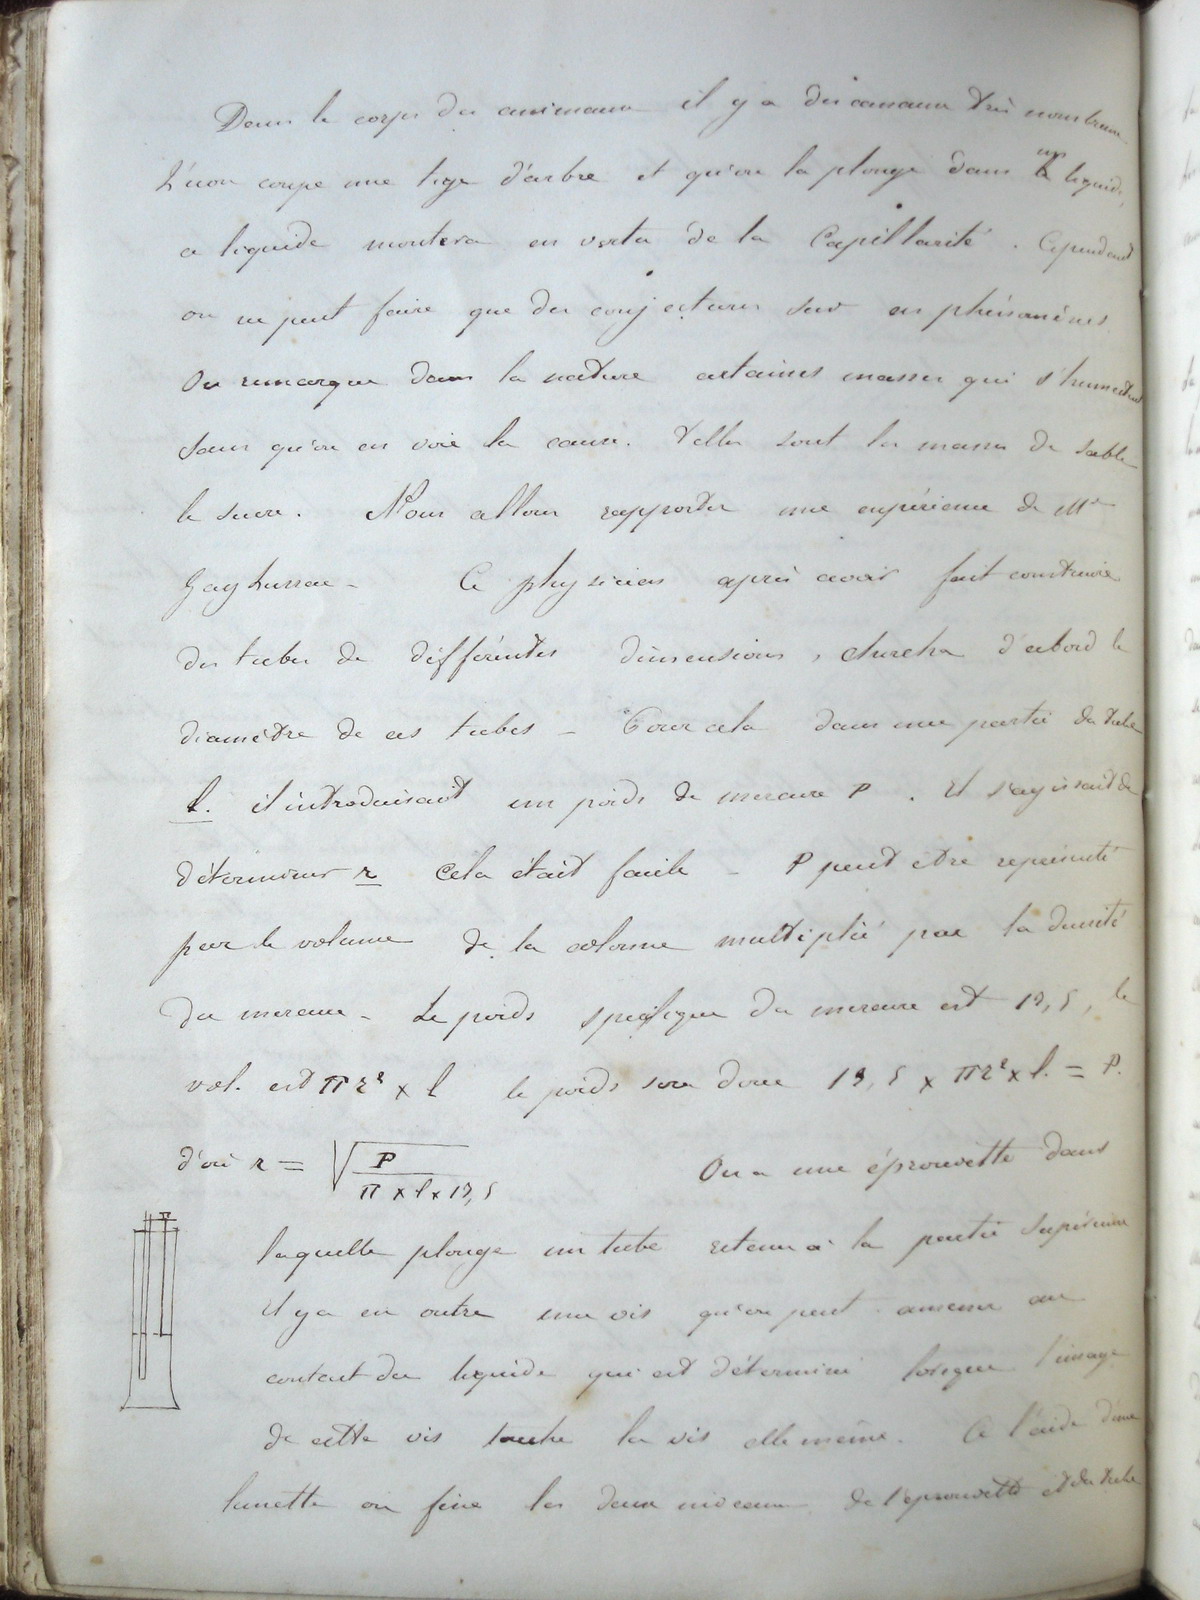 Dans le corps des animaux il y a des canaux très nombreux
L'on coupe une tige d'arbre et qu'on la plonge dans un liquide,
ce liquide montera en vertu de la Capillarité. Cependant
on ne peut faire que des conjectures sur ces phénomènes.
On remarque dans la nature certaines masses qui s'humectent
sans qu'on en voie la cause. Telles sont les masses de sable
le sucre. Nous allons rapporter une expérience de Mr
Gay Lussac - Ce physicien après avoir fait construire
des tubes de différentes dimensions, chercha d'abord le
diamètre de ces tubes - Pour cela dans une partie du tube
l. il introduisait un poids de mercure P. Il s'agissait de
déterminer r Cela était facile - P peut être représenté
par le volume de la colonne multiplié par la densité
du mercure - Le poids spécifique du mercure est 13,5, le
vol. est π r² x l le poids sera donc 13,5 x π r² x l. = P.
d'où r = √ P / π x l x 13,5 On a une éprouvette dans
laquelle plonge un tube retenu à la partie supérieure
il y a en outre une vis qu'on peut amener au
contact du liquide qui est déterminé lorsque l'image
de cette vis touche la vis elle même. A l'aide d'une
lunette on fixe les deux niveaux de l'éprouvette et du tube